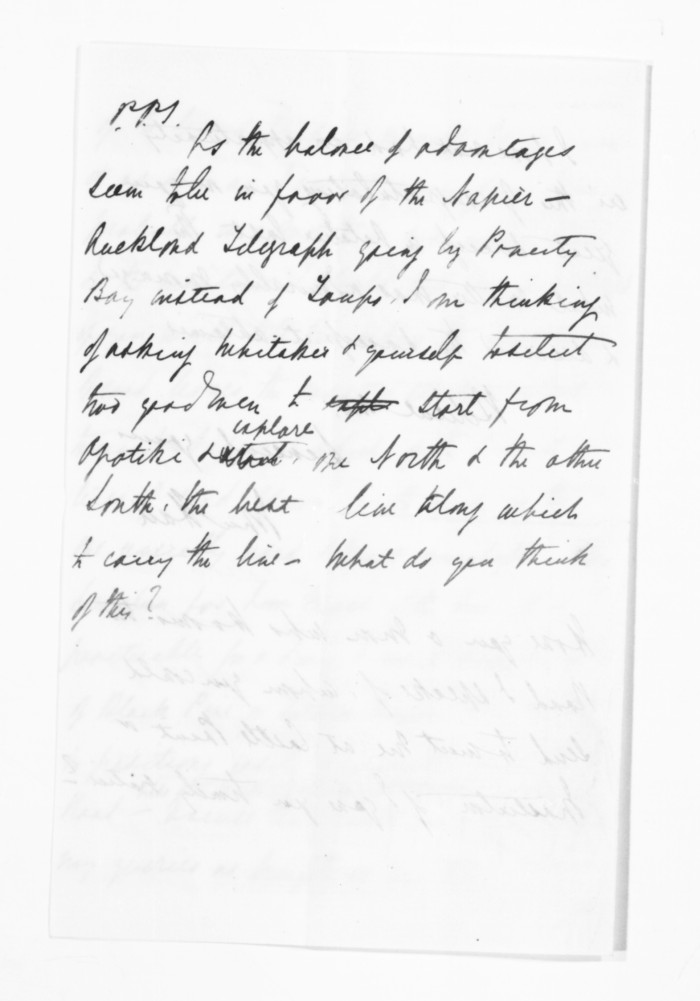 P.P.S.
As the balance of advantages
seem to be in favor of the Napier –
Auckland Telegraph going by Poverty
Bay instead of Taupo, I am thinking
of asking Whitaker & yourself to select
two good men to expl start from
Opotiki & explore one North & the other
South, the best line along which
to carry the line – What do you think
of this?